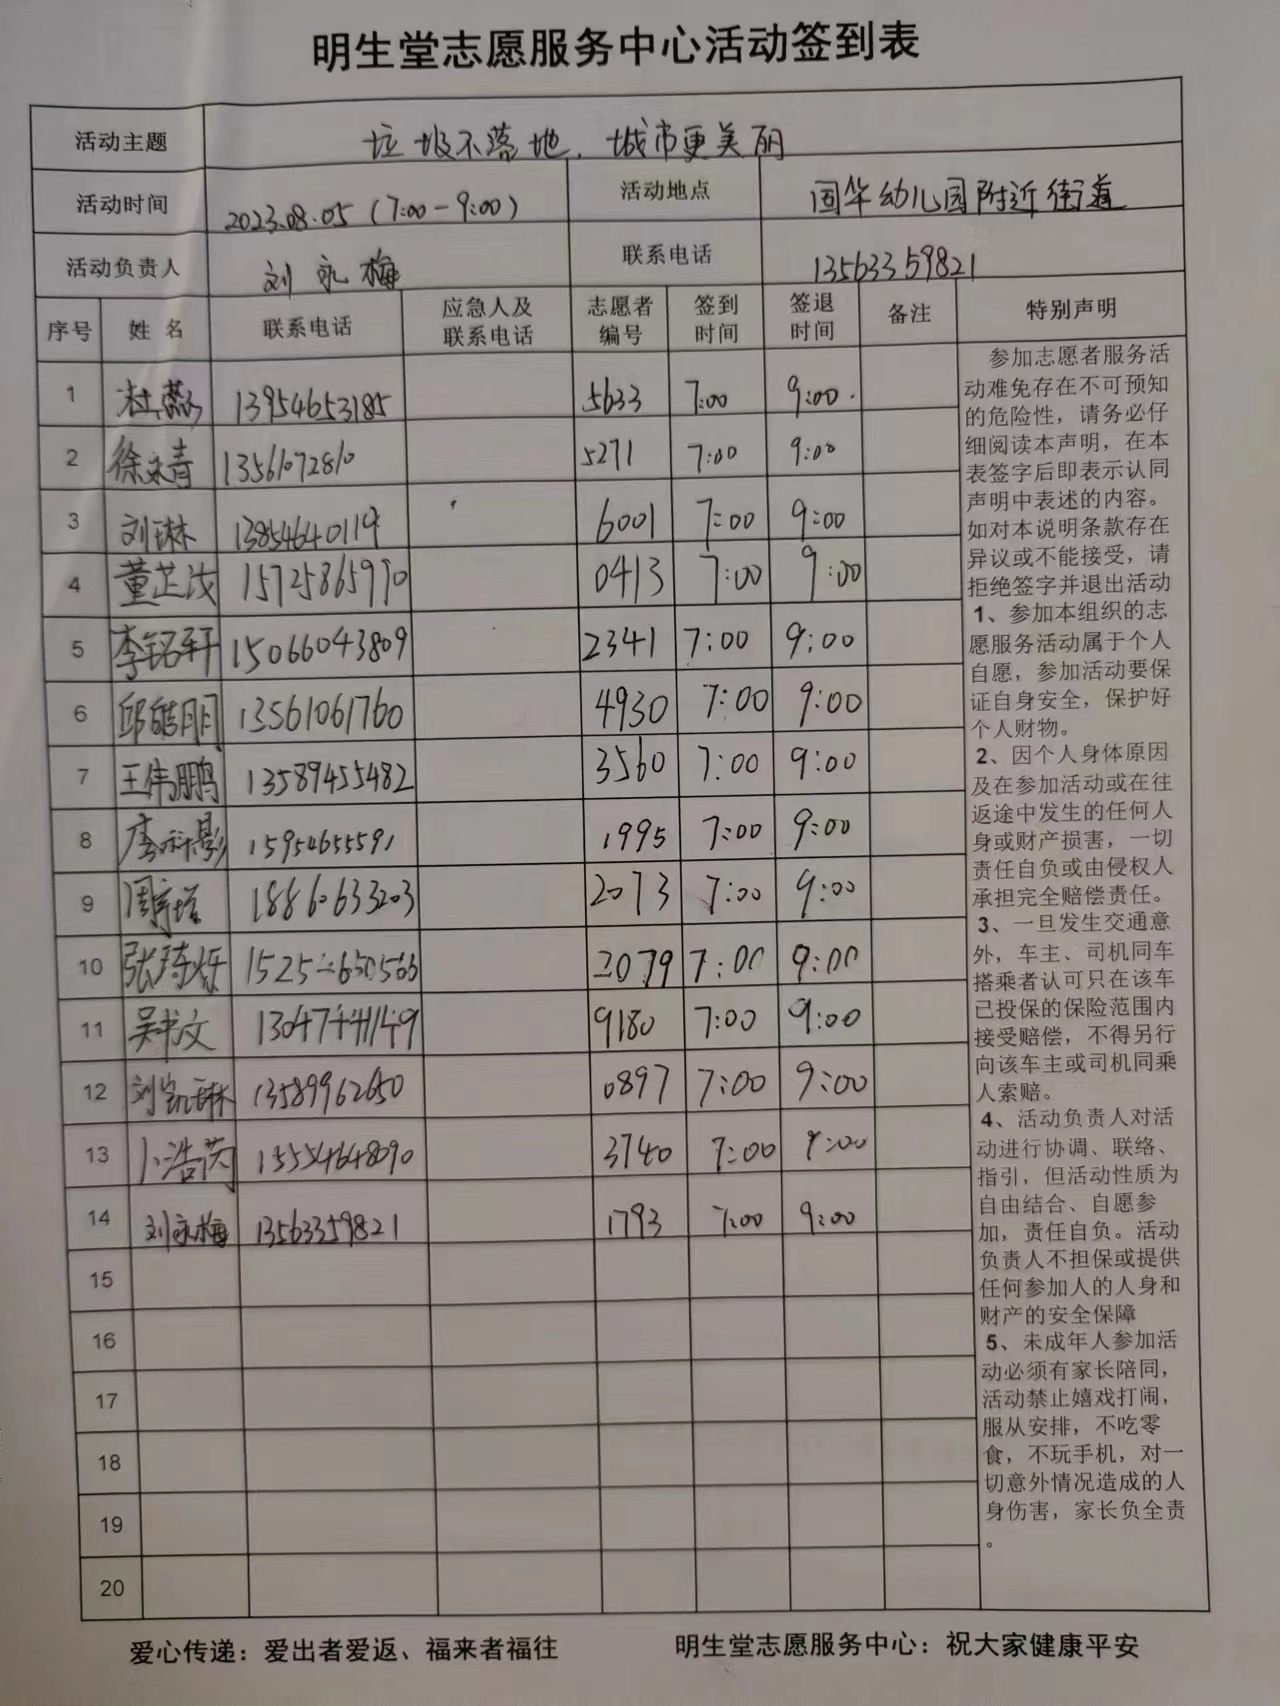 明生堂志愿服务中心活动签到表
活动主题 垃圾不落地，城市更美丽
活动时间 2023.08.05 (7:00-9:00) 活动地点 国华幼儿园附近街道
活动负责人 刘永梅 联系电话 13563359821
序号 姓名 联系电话 应急人及联系电话 志愿者编号 签到时间 签退时间 备注 特别声明
1 13954653185 5633 7:00 9:00.
2 徐永青 13561072810 5271 7:00 9:00
3 刘琳 13854640119 6001 7:00 9:00
4 董芷汝 15725865990 0413 7:00 9:00
5 李铭轩 15066043809 2341 7:00 9:00
6 邱皓玥 13561061760 4930 7:00 9:00
7 王伟鹏 13589455482 3560 7:00 9:00
8 15954655591 1995 7:00 9:00
9 18860633203 2073 7:00 9:00
10 2079 7:00 9:00
11 吴书文 9180 7:00 9:00
12 刘凯琳 13589962650 0897 7:00 9:00
13 卜浩芮 15554648090 3740 7:00 9:00
14 刘永梅 13563359821 1793 7:00 9:00
15
16
17
18
19
20
参加志愿者服务活
动难免存在不可预知
的危险性，请务必仔
细阅读本声明，在本
表签字后即表示认同
声明中表述的内容。
如对本说明条款存在
异议或不能接受，请
拒绝签字并退出活动
1、参加本组织的志
愿服务活动属于个人
自愿，参加活动要保
证自身安全，保护好
个人财物。
2、因个人身体原因
及在参加活动或在往
返途中发生的任何人
身或财产损害，一切
责任自负或由侵权人
承担完全赔偿责任。
3、一旦发生交通意
外，车主、司机同车
搭乘者认可只在该车
已投保的保险范围内
接受赔偿，不得另行
向该车主或司机同乘
人索赔。
4、活动负责人对活
动进行协调、联络、
指引，但活动性质为
自由结合、自愿参
加，责任自负。活动
负责人不担保或提供
任何参加人的人身和
财产的安全保障
5、未成年人参加活
动必须有家长陪同，
活动禁止嬉戏打闹，
服从安排，不吃零
食，不玩手机，对一
切意外情况造成的人
身伤害，家长负全责
。
爱心传递：爱出者爱返、福来者福往 明生堂志愿服务中心：祝大家健康平安